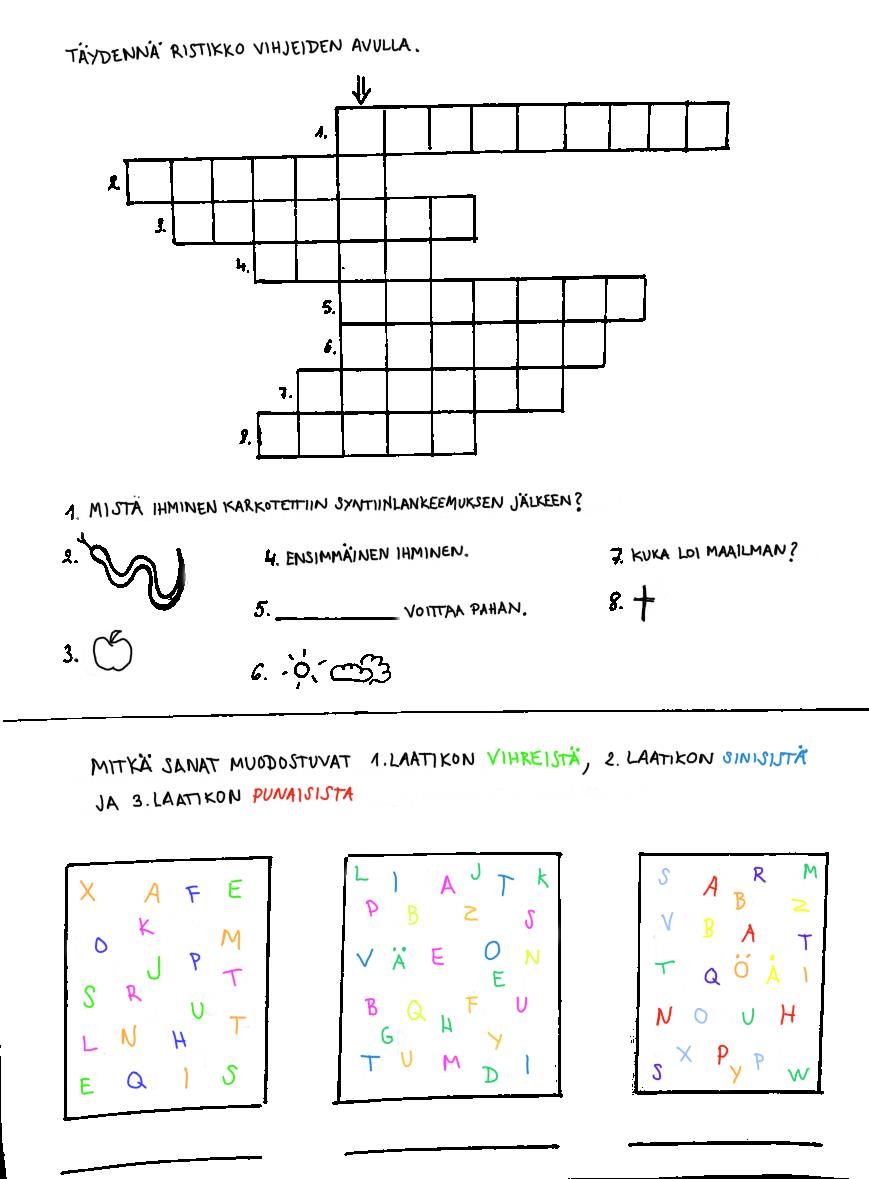 TÄYDENNÄ RISTIKKO VIHJEIDEN AVULLA.
1.
2.
3.
4.
5.
6.
7.
8.
1. MISTÄ IHMINEN KARKOTETTIIN SYNTIINLANKEEMUKSEN JÄLKEEN?
2.
4. ENSIMMÄINEN IHMINEN.
7. KUKA LOI MAAILMAN?
5. VOITTAA PAHAN.
8.
3.
6.
MITKÄ SANAT MUODOSTUVAT 1. LAATIKON VIHREISTÄ, 2. LAATIKON SINISISTÄ
JA 3. LAATIKON PUNAISISTA
X A F E
K
O M
J P T
S R
U
L N H T
E Q I S
L I A J T K
P B Z S
V Ä E O N
E
B Q F U
G H Y
T U M D I
S A R M
B Z
V B A T
T Q Ö Å I
N O U H
X P P
S Y W